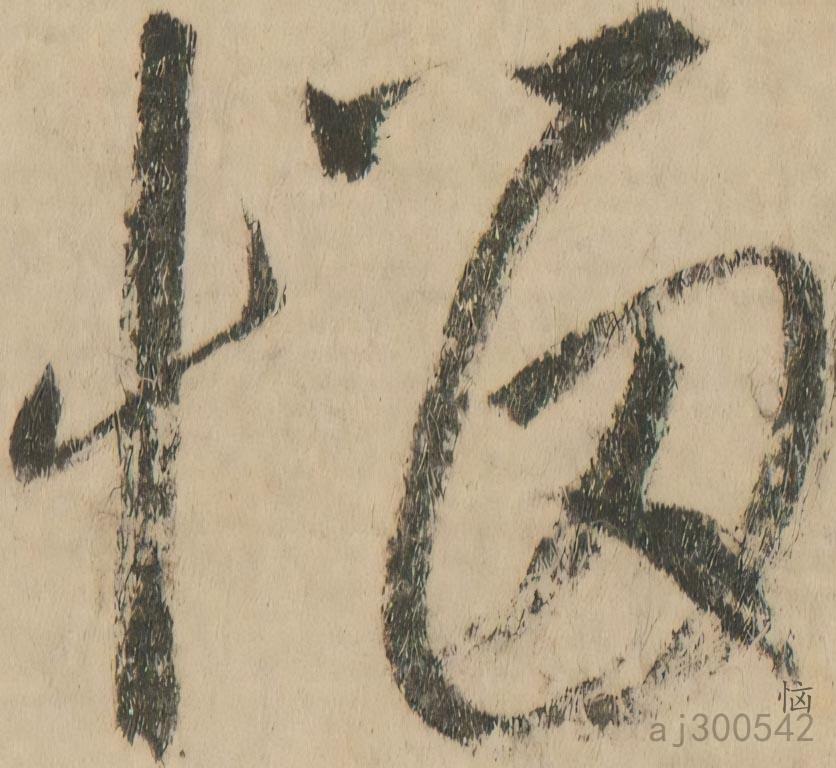 恼
恼
aj300542